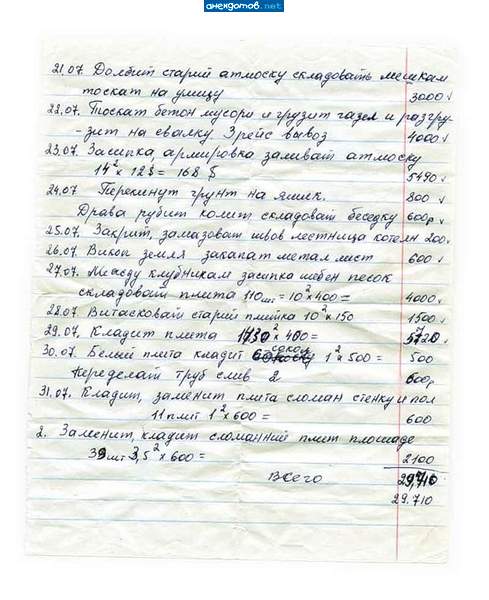 анекдотов.net
21.07. Долбит старий атмоску складовать мешкам
тоскат на улицу 3000
22.07. Тоскат бетон мусори и грузит газел и разгру-
-зит на свалку 3 рейс вывоз 4000
23.07. Засипка, армировка заливат атмоску
14² х 12$ = 168 $ 5490
24.07 Перекинут грунт на ямик. 800
Драва рубит комит складоват беседку 600р
25.07. Закрит, замазоват швов лестница котелн 200
26.07 Викоп земля закапат метал лист 600
27.07. Между клубникам засипка шебен песок
складоват плита 110 шт = 10² х 400 = 4000
28.07 Витасковай старий плитка 10² х 150 1500
29.07. Кладит плета х 400 = 5720
30.07. Белый плита кладит сокол 1² х 500 = 500
Кеределат труб слив 2 600р
31.07. Кладит, заменит плита сломан стенку и пол
11 плит 1² х 600 = 600
2. Заменит, кладит сломанний плит площаде
39 шт 3,5² х 600 = 2100
Всего 29.710
29.710